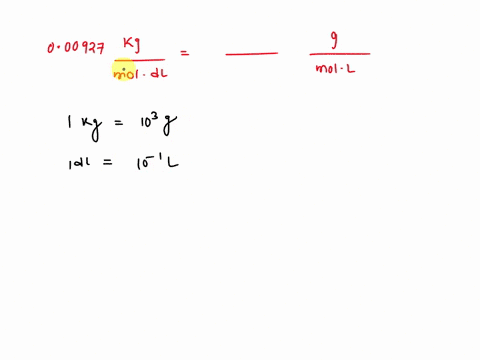 0.00927 Kg/mol·dL = ____ g/mol·L
1 Kg = 10³ g
1dL = 10⁻¹ L